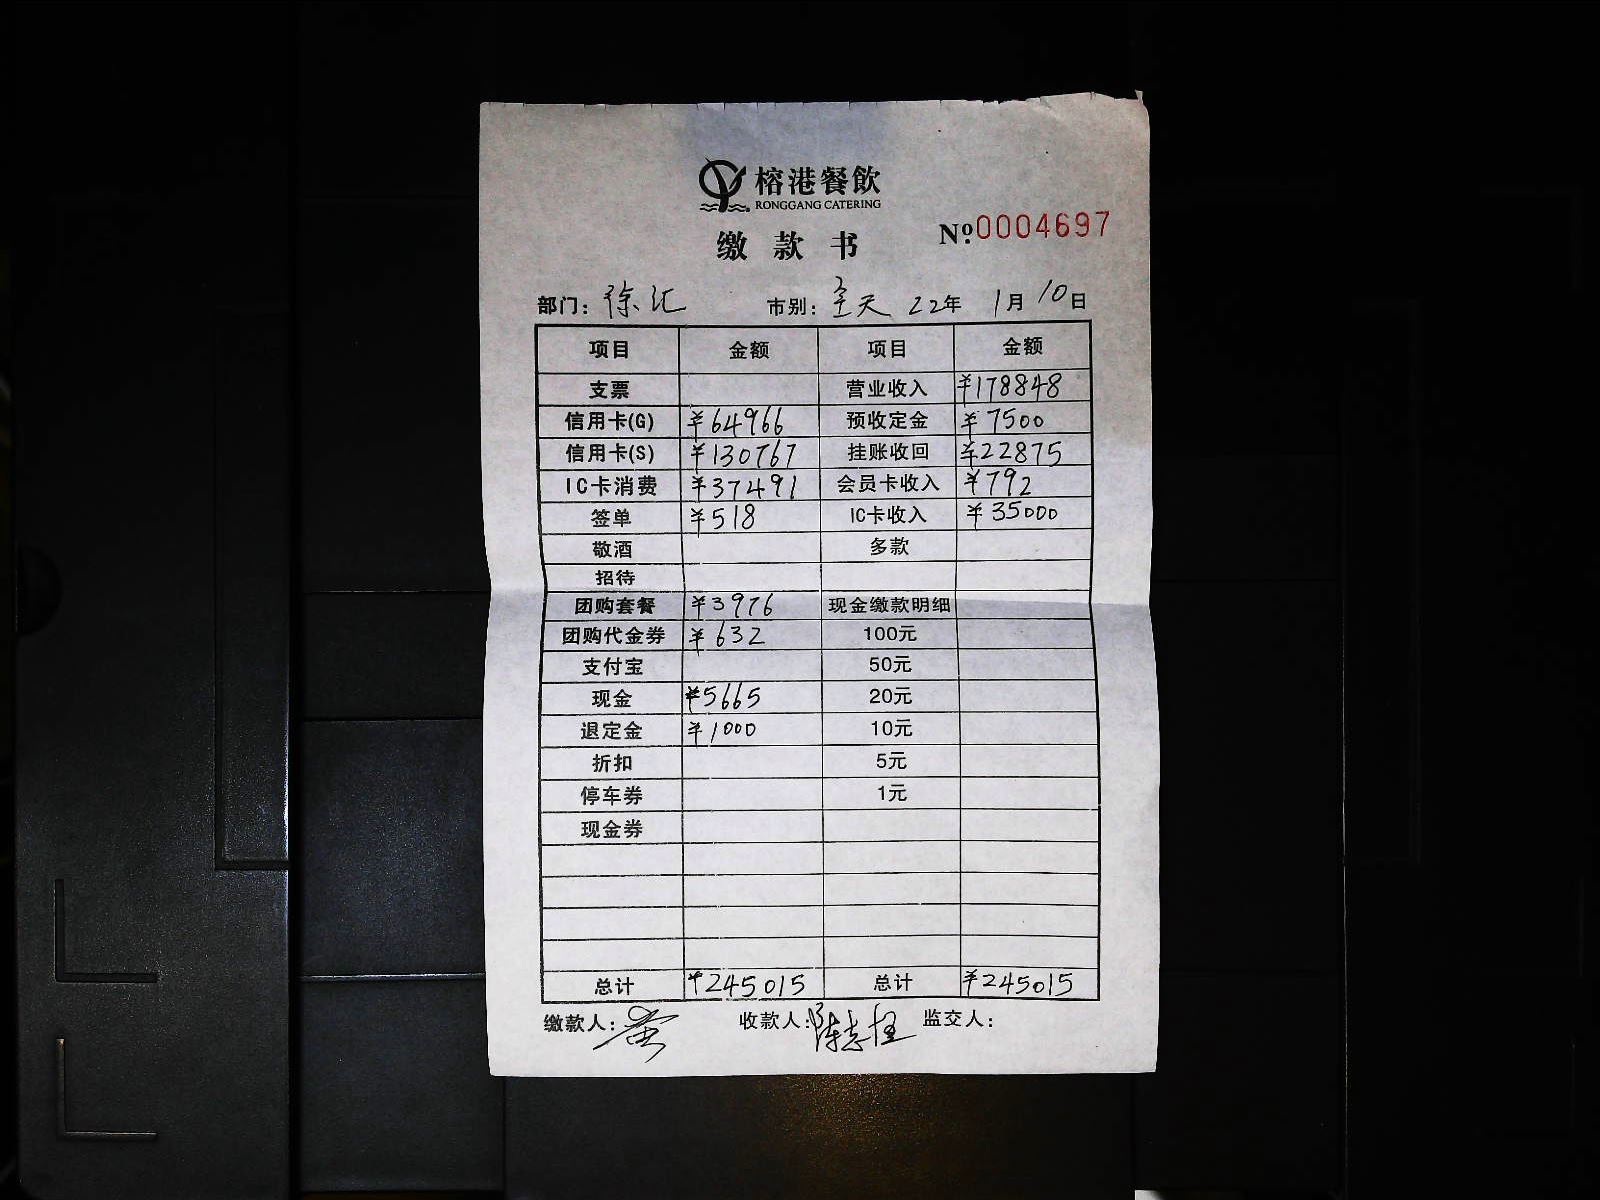 榕港餐飲
RONGGANG CATERING
缴款书 No.0004697
部门：徐汇 市别：全天 22年 1月10日
项目 金额 项目 金额
支票 营业收入 ¥178848
信用卡(G) ¥64966 预收定金 ¥7500
信用卡(S) ¥130767 挂账收回 ¥22875
IC卡消费 ¥37491 会员卡收入 ¥792
签单 ¥518 IC卡收入 ¥35000
敬酒 多款
招待
团购套餐 ¥3976 现金缴款明细
团购代金券 ¥632 100元
支付宝 50元
现金 ¥5665 20元
退定金 ¥1000 10元
折扣 5元
停车券 1元
现金券
总计 ¥245015 总计 ¥245015
缴款人： 收款人： 监交人：